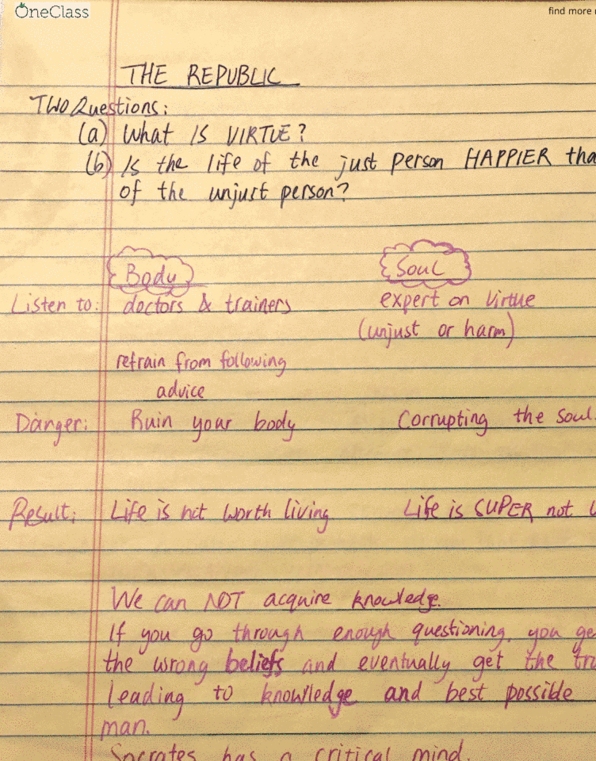 OneClass
find more
THE REPUBLIC
Two Questions:
(a) What IS VIRTUE?
(b) Is the life of the just person HAPPIER tha
of the unjust person?
Body Soul
Listen to: doctors & trainers expert on virtue
(unjust or harm)
refrain from following
advice
Danger: Ruin your body Corrupting the soul.
Result: Life is not worth living Life is SUPER not
We can NOT acquire knowledge.
If you go through enough questioning, you ge
the wrong beliefs and eventually get the tru
leading to knowledge and best possible
man.
Socrates has a critical mind.